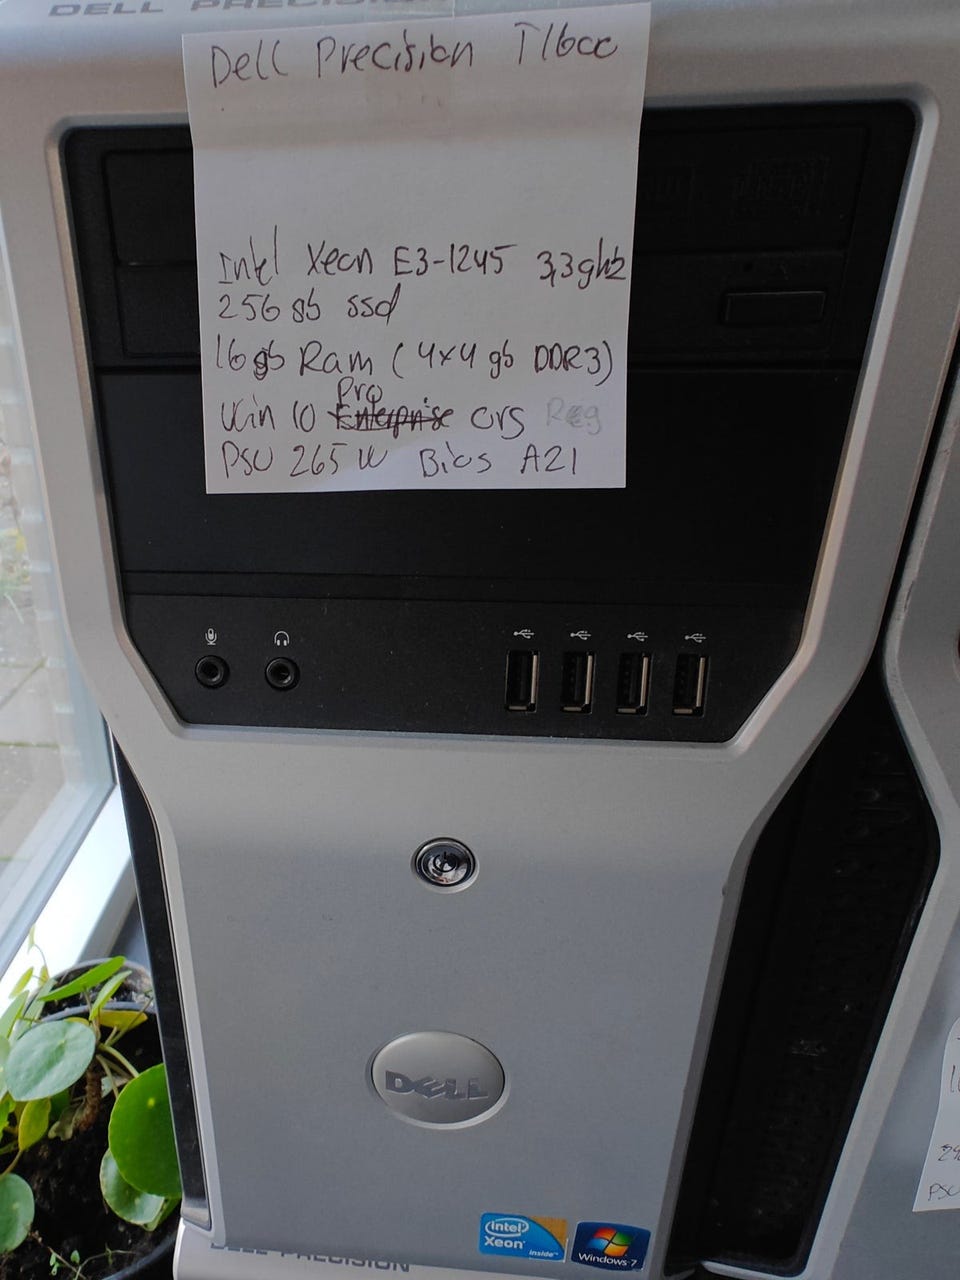 DELL PRECISION
Dell Precision T1600
Intel Xeon E3-1245 3,3ghz
256 gb ssd
16gb Ram (4x4 gb DDR3)
Pro
Win 10 Enterprise ors Reg
PSU 265 W Bios A21
DELL
intel
Xeon
inside™
Windows 7
DELL PRECISION
PSU